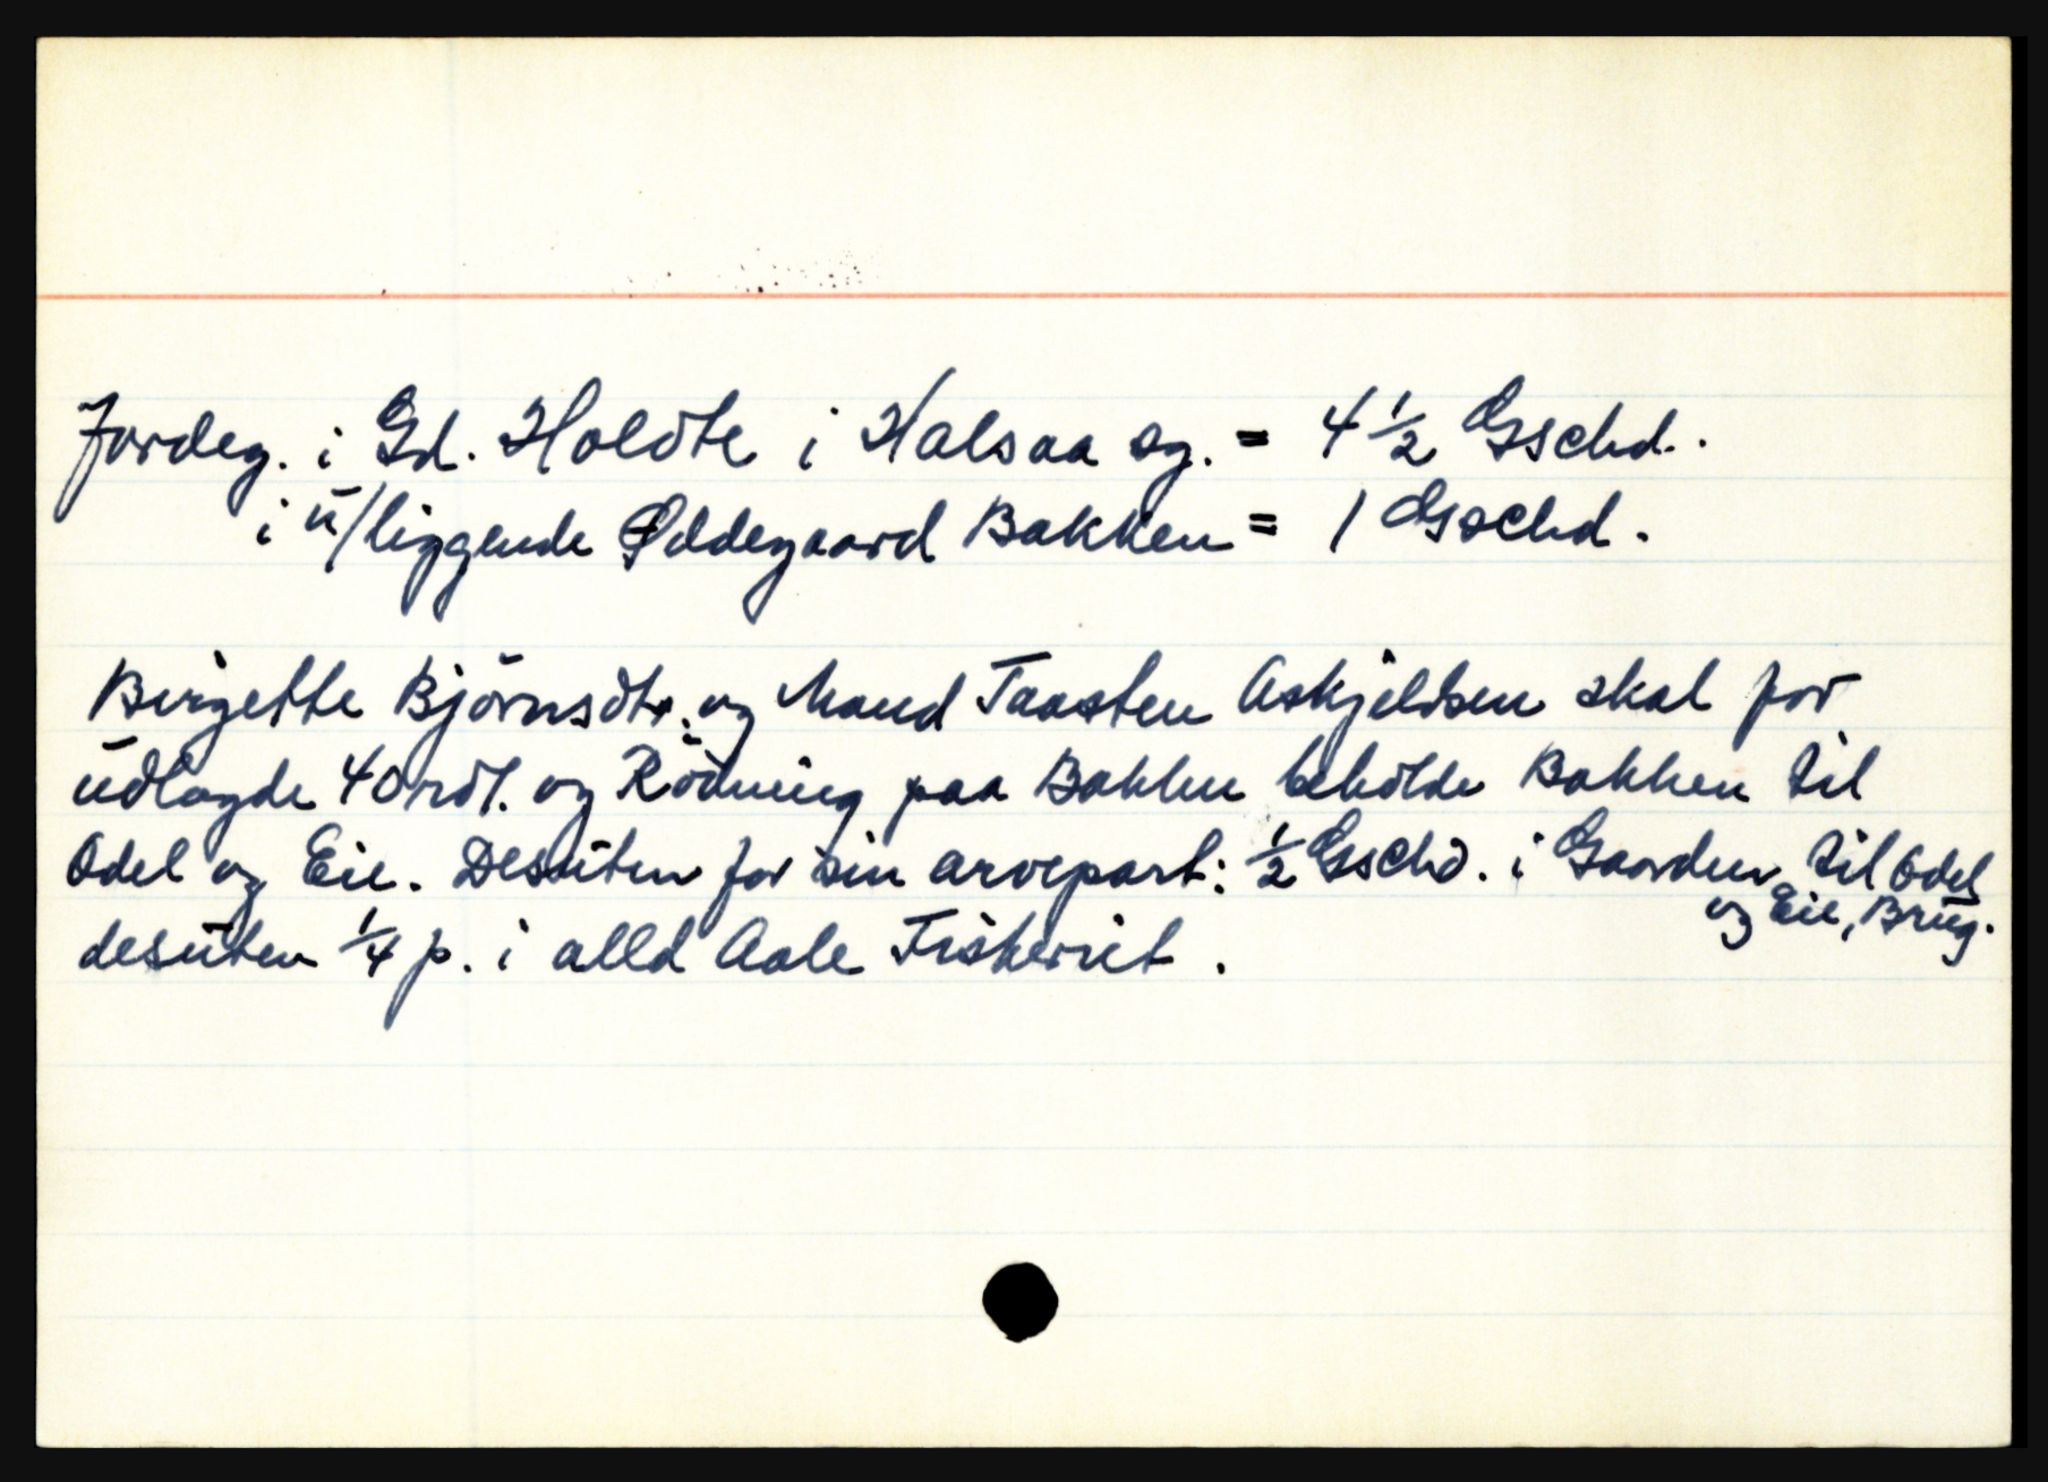 Jordeg. i Gd. Holdte i Halsaa sg. = 4 ½ Gschd.
i u/liggende Øddegaard Bakken = 1 Gschd.
Birgette Björnsdtr. og Mand Taasten Askjeldsen skal for
udlagde 40 rdl. og Rödning paa Bakken beholde Bakken til
Odel og Eie. Desuten for sin arvepart: ½ Gschd. i Gaarden til Odel
og Eie, Brug.
desuten ¼ p. i alld Aale Fiskeriet.